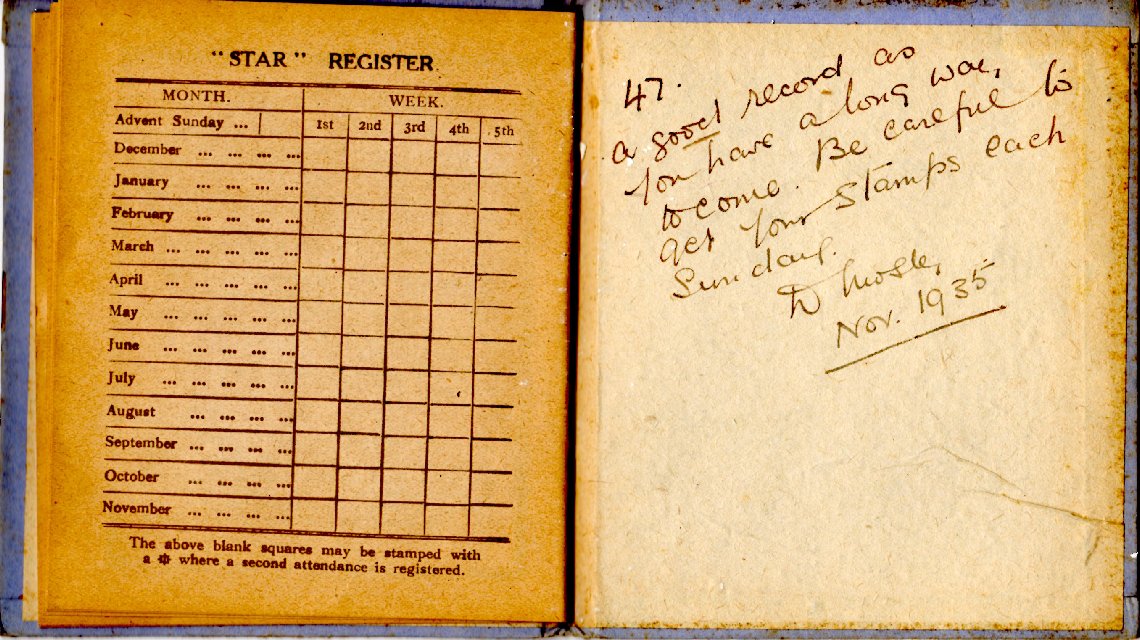 "STAR" REGISTER.
MONTH. WEEK.
Advent Sunday ... 1st 2nd 3rd 4th 5th
December ... ... ... ...
January ... ... ... ...
February ... ... ... ...
March ... ... ... ... ...
April ... ... ... ... ...
May ... ... ... ... ...
June ... ... ... ... ...
July ... ... ... ... ...
August ... ... ... ...
September ... ... ... ...
October ... ... ... ...
November ... ... ... ...
The above blank squares may be stamped with
a ✡ where a second attendance is registered.
47.
a good record as
you have a long way
to come. Be careful to
get your Stamps each
Sunday.
Nov. 1935